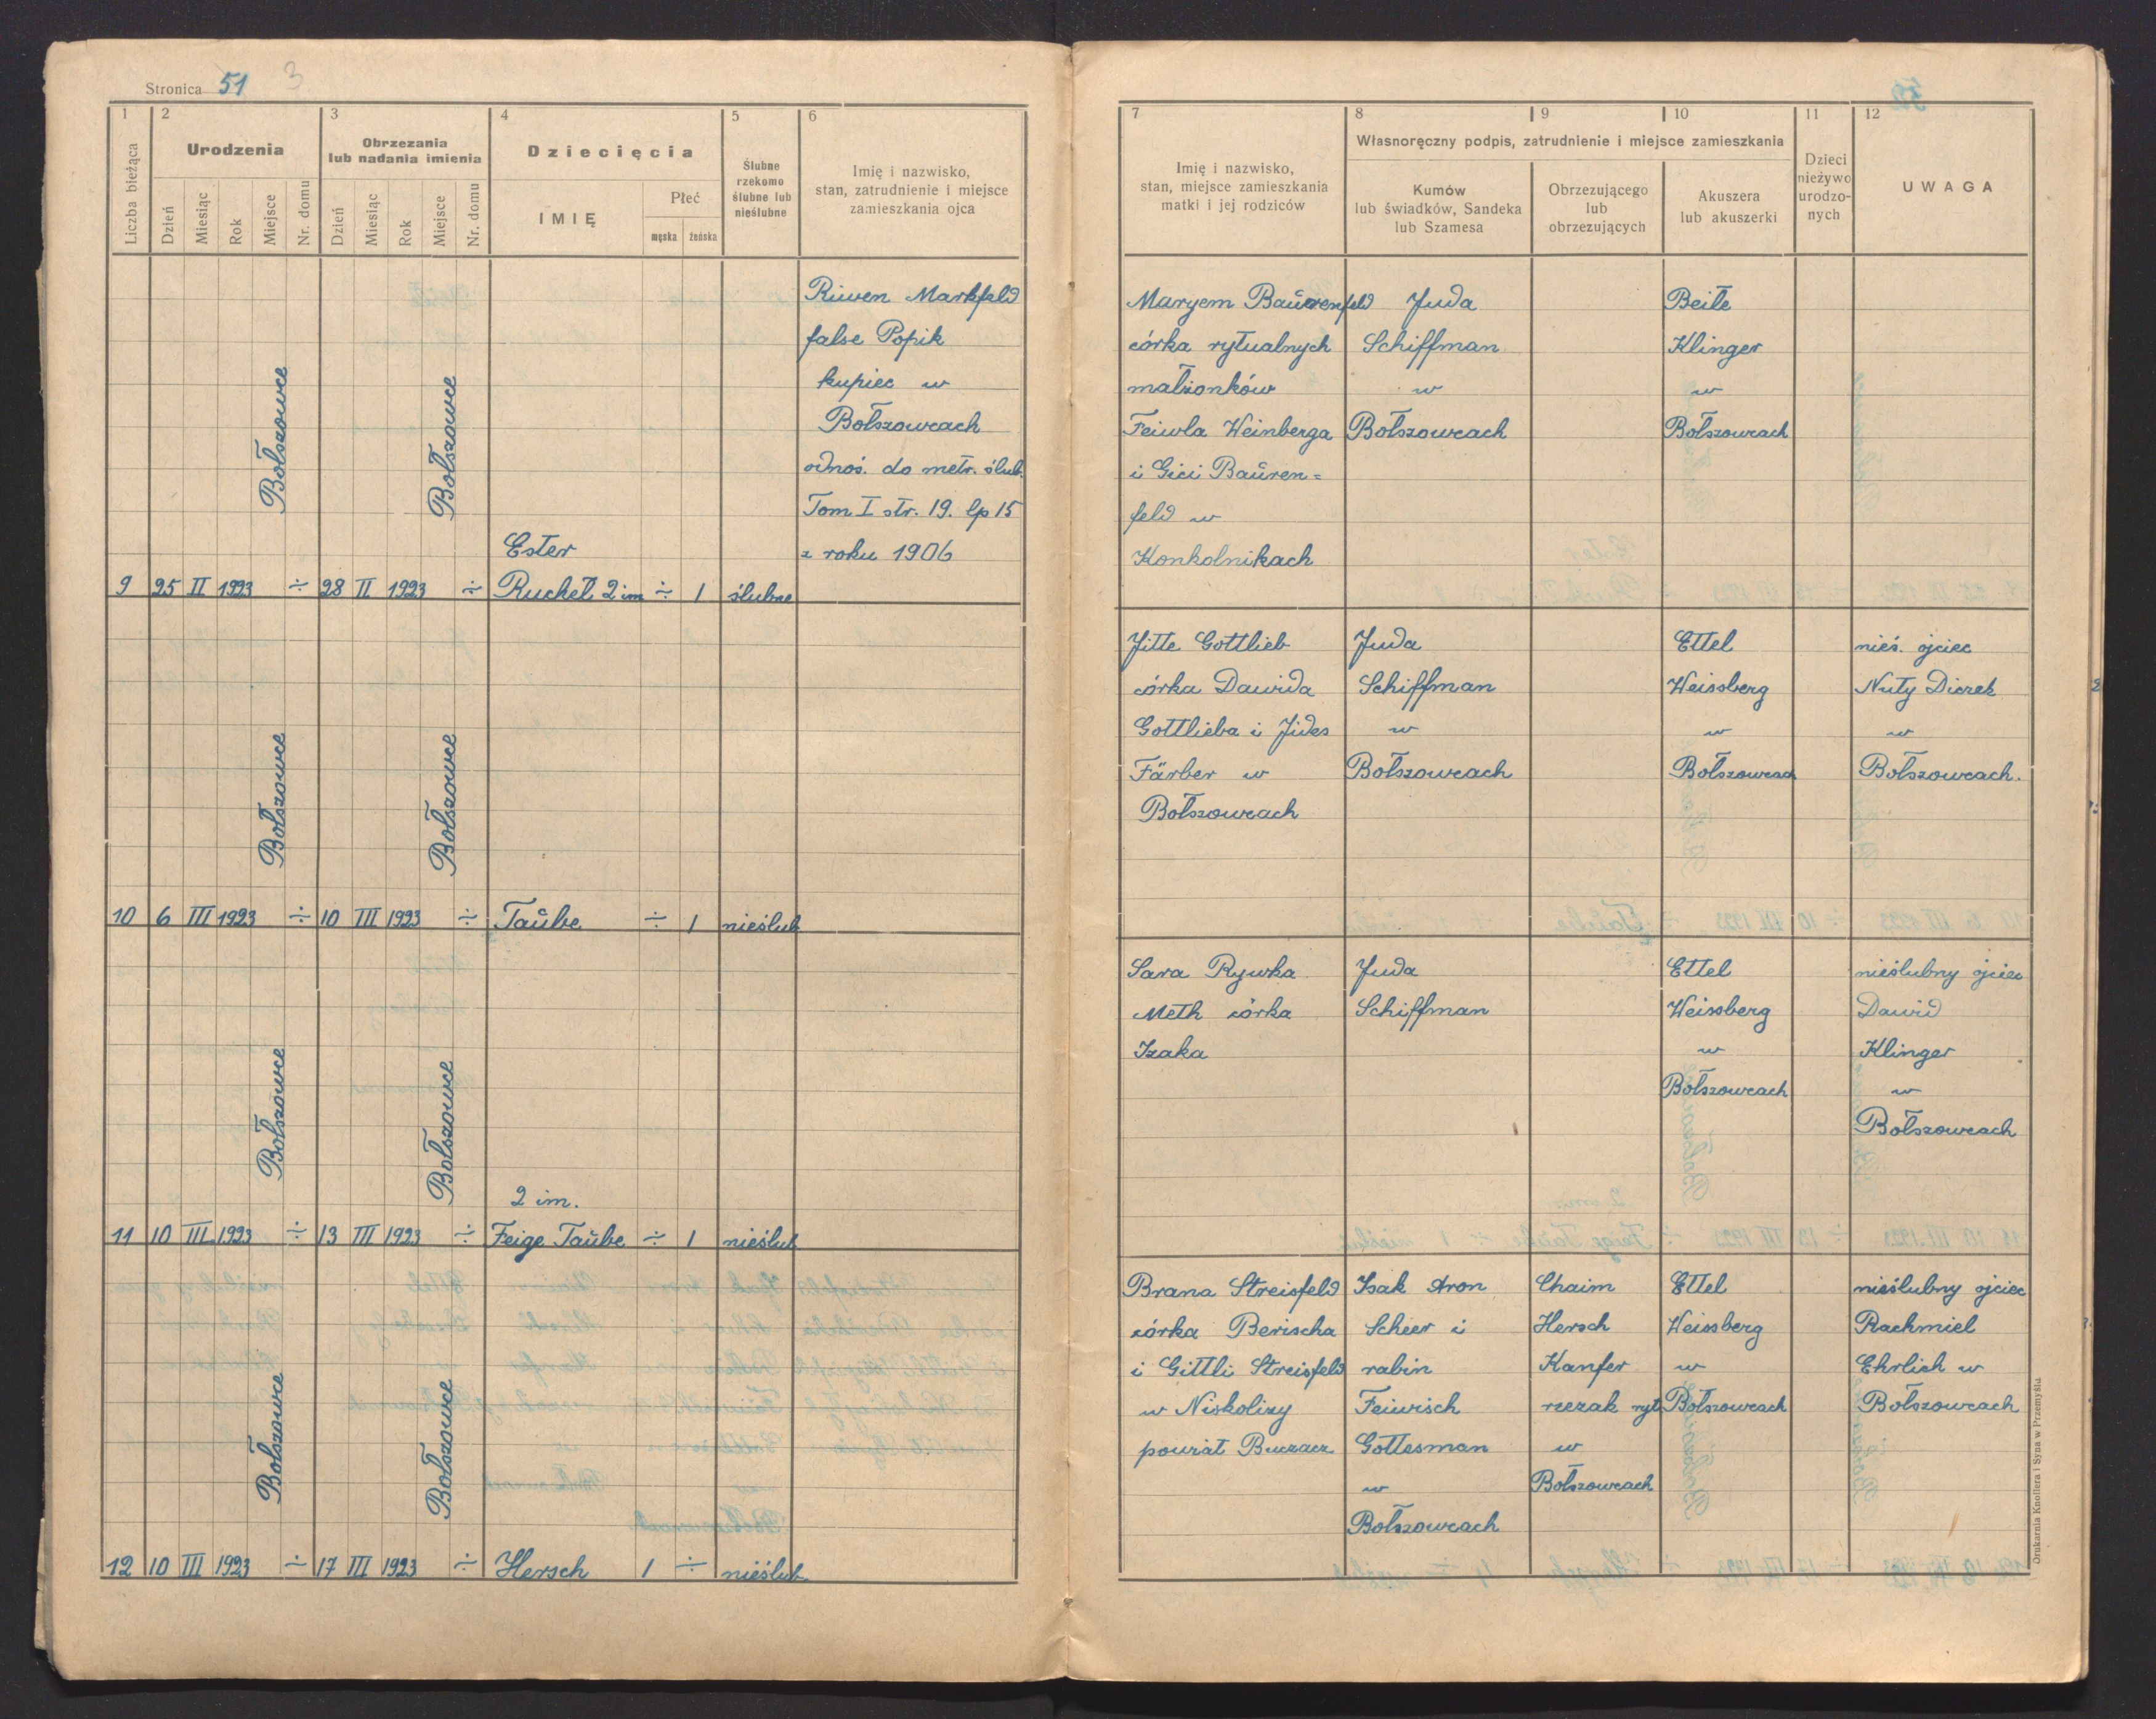 Stronica 51 3
1
2
3
4
5
6
Liczba bieżąca
Urodzenia
Obrzezania
lub nadania imienia
Dziecięcia
Ślubne
rzekomo
ślubne lub
nieślubne
Imię i nazwisko,
stan, zatrudnienie i miejsce
zamieszkania ojca
Dzień
Miesiąc
Rok
Miejsce
Nr. domu
Dzień
Miesiąc
Rok
Miejsce
Nr. domu
IMIĘ
Płeć
męska
żeńska
Riwen Markfeld
false Popik
kupiec w
Bołszowcach
odnoś. do metr. ślub.
Tom I str. 19. lp 15
z roku 1906
Bołszowce
Bołszowce
Ester
9 25 II 1923 ÷ 28 II 1923 ÷ Ruchel 2 im ÷ 1 ślubne
Bołszowce
Bołszowce
10 6 III 1923 ÷ 10 III 1923 ÷ Taŭbe ÷ 1 nieślub
Bołszowce
Bołszowce
2 im.
11 10 III 1923 ÷ 13 III 1923 ÷ Feige Taŭbe ÷ 1 nieślub
Bołszowce
Bołszowce
12 10 III 1923 ÷ 17 III 1923 ÷ Hersch 1 ÷ nieślub
52
7
8
9
10
11
12
Imię i nazwisko,
stan, miejsce zamieszkania
matki i jej rodziców
Własnoręczny podpis, zatrudnienie i miejsce zamieszkania
Kumów
lub świadków, Sandeka
lub Szamesa
Obrzezującego
lub
obrzezujących
Akuszera
lub akuszerki
Dzieci
nieżywo
urodzo-
nych
UWAGA
Maryem Baŭerenfeld
córka rytualnych
małżonków
Feiwla Weinberga
i Gici Baŭren=
feld w
Konkolnikach
Juda
Schiffman
w
Bołszowcach
Beile
Klinger
w
Bołszowcach
Jitte Gottlieb
córka Dawida
Gottlieba i Jides
Färber w
Bołszowcach
Juda
Schiffman
w
Bołszowcach
Ettel
Weissberg
w
Bołszowcach
nieś. ojciec
Nuty Dicrek
w
Bołszowcach.
Sara Rywka
Meth córka
Izaka
Juda
Schiffman
Ettel
Weissberg
w
Bołszowcach
nieślubny ojciec
Dawid
Klinger
w
Bołszowcach
Brana Streisfeld
córka Berischa
i Gittli Streisfeld
w Niskolizy
powiat Buczacz
Isak Aron
Scheer i
rabin
Feiwisch
Gottesman
w
Bołszowcach
Chaim
Hersch
Kanfer
rzezak ryt
w
Bołszowcach
Ettel
Weissberg
w
Bołszowcach
nieślubny ojciec
Rachmiel
Ehrlich w
Bołszowcach
Drukarnia Knollera i Syna w Przemyślu.